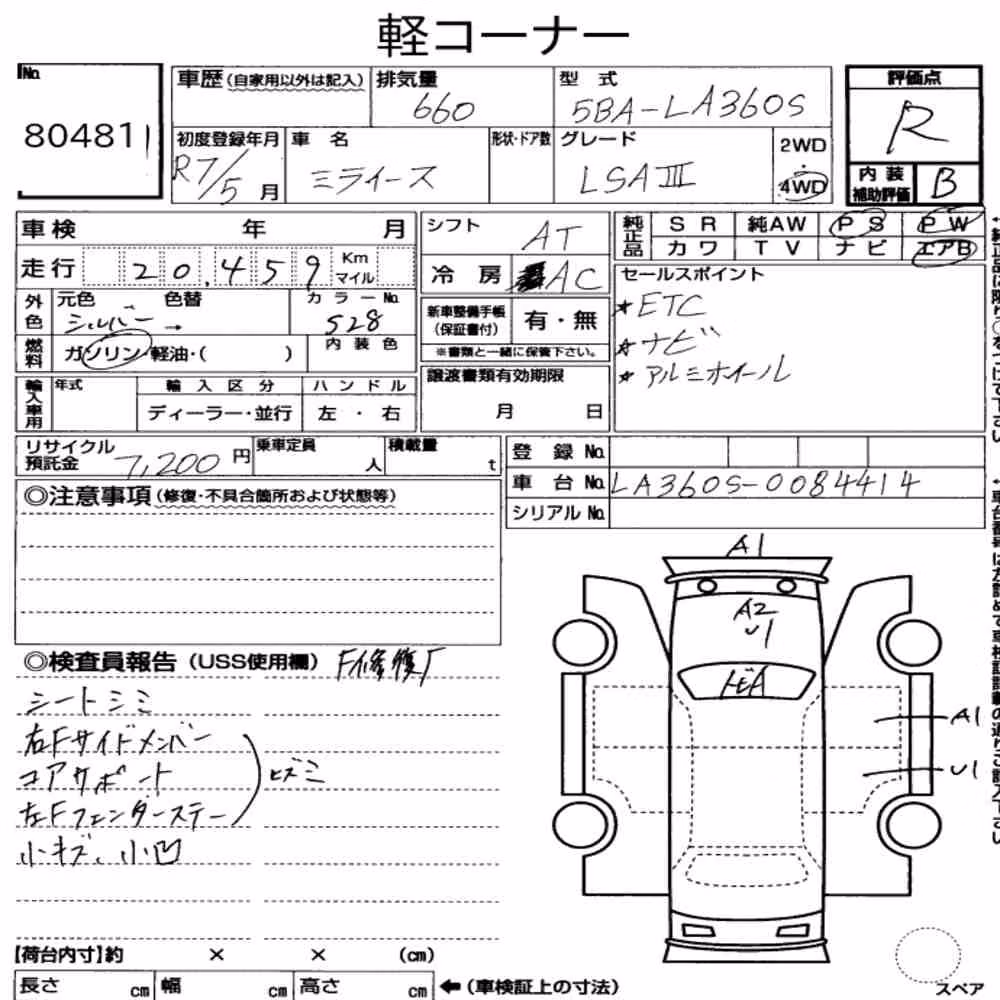 軽コーナー
No. 80481
車歴 (自家用以外は記入)
排気量 660
型式 5BA-LA360S
評価点 R
初度登録年月 R7/5月
車名 ミライース
形状・ドア数
グレード LSAⅢ
2WD・4WD
内装補助評価 B
車検 年 月
シフト AT
純正品 SR 純AW PS PW
カワ TV ナビ エアB
走行 20,459 Km マイル
冷房 AC
セールスポイント
★ETC
★ナビ
★アルミホイール
外色 元色 シルバー → 色替
カラーNo. S28
新車整備手帳(保証書付) 有・無
※書類と一緒に保管下さい。
燃料 ガソリン・軽油・( )
内装色
輸入車用 年式 輸入区分 ハンドル
ディーラー・並行 左・右
譲渡書類有効期限
月 日
リサイクル預託金 7,200円
乗車定員 人
積載量 t
登録No.
車台No. LA360S-0084414
シリアルNo.
◎注意事項(修復・不具合箇所および状態等)
◎検査員報告(USS使用欄) F修復歴
シートシミ
右Fサイドメンバー
コアサポート
左Fフェンダーステー
ヒズミ
小キズ、小凹
A1
A2
U1
A1
U1
【荷台内寸】約 × × (cm)
長さ cm 幅 cm 高さ cm ←(車検証上の寸法)
スペア